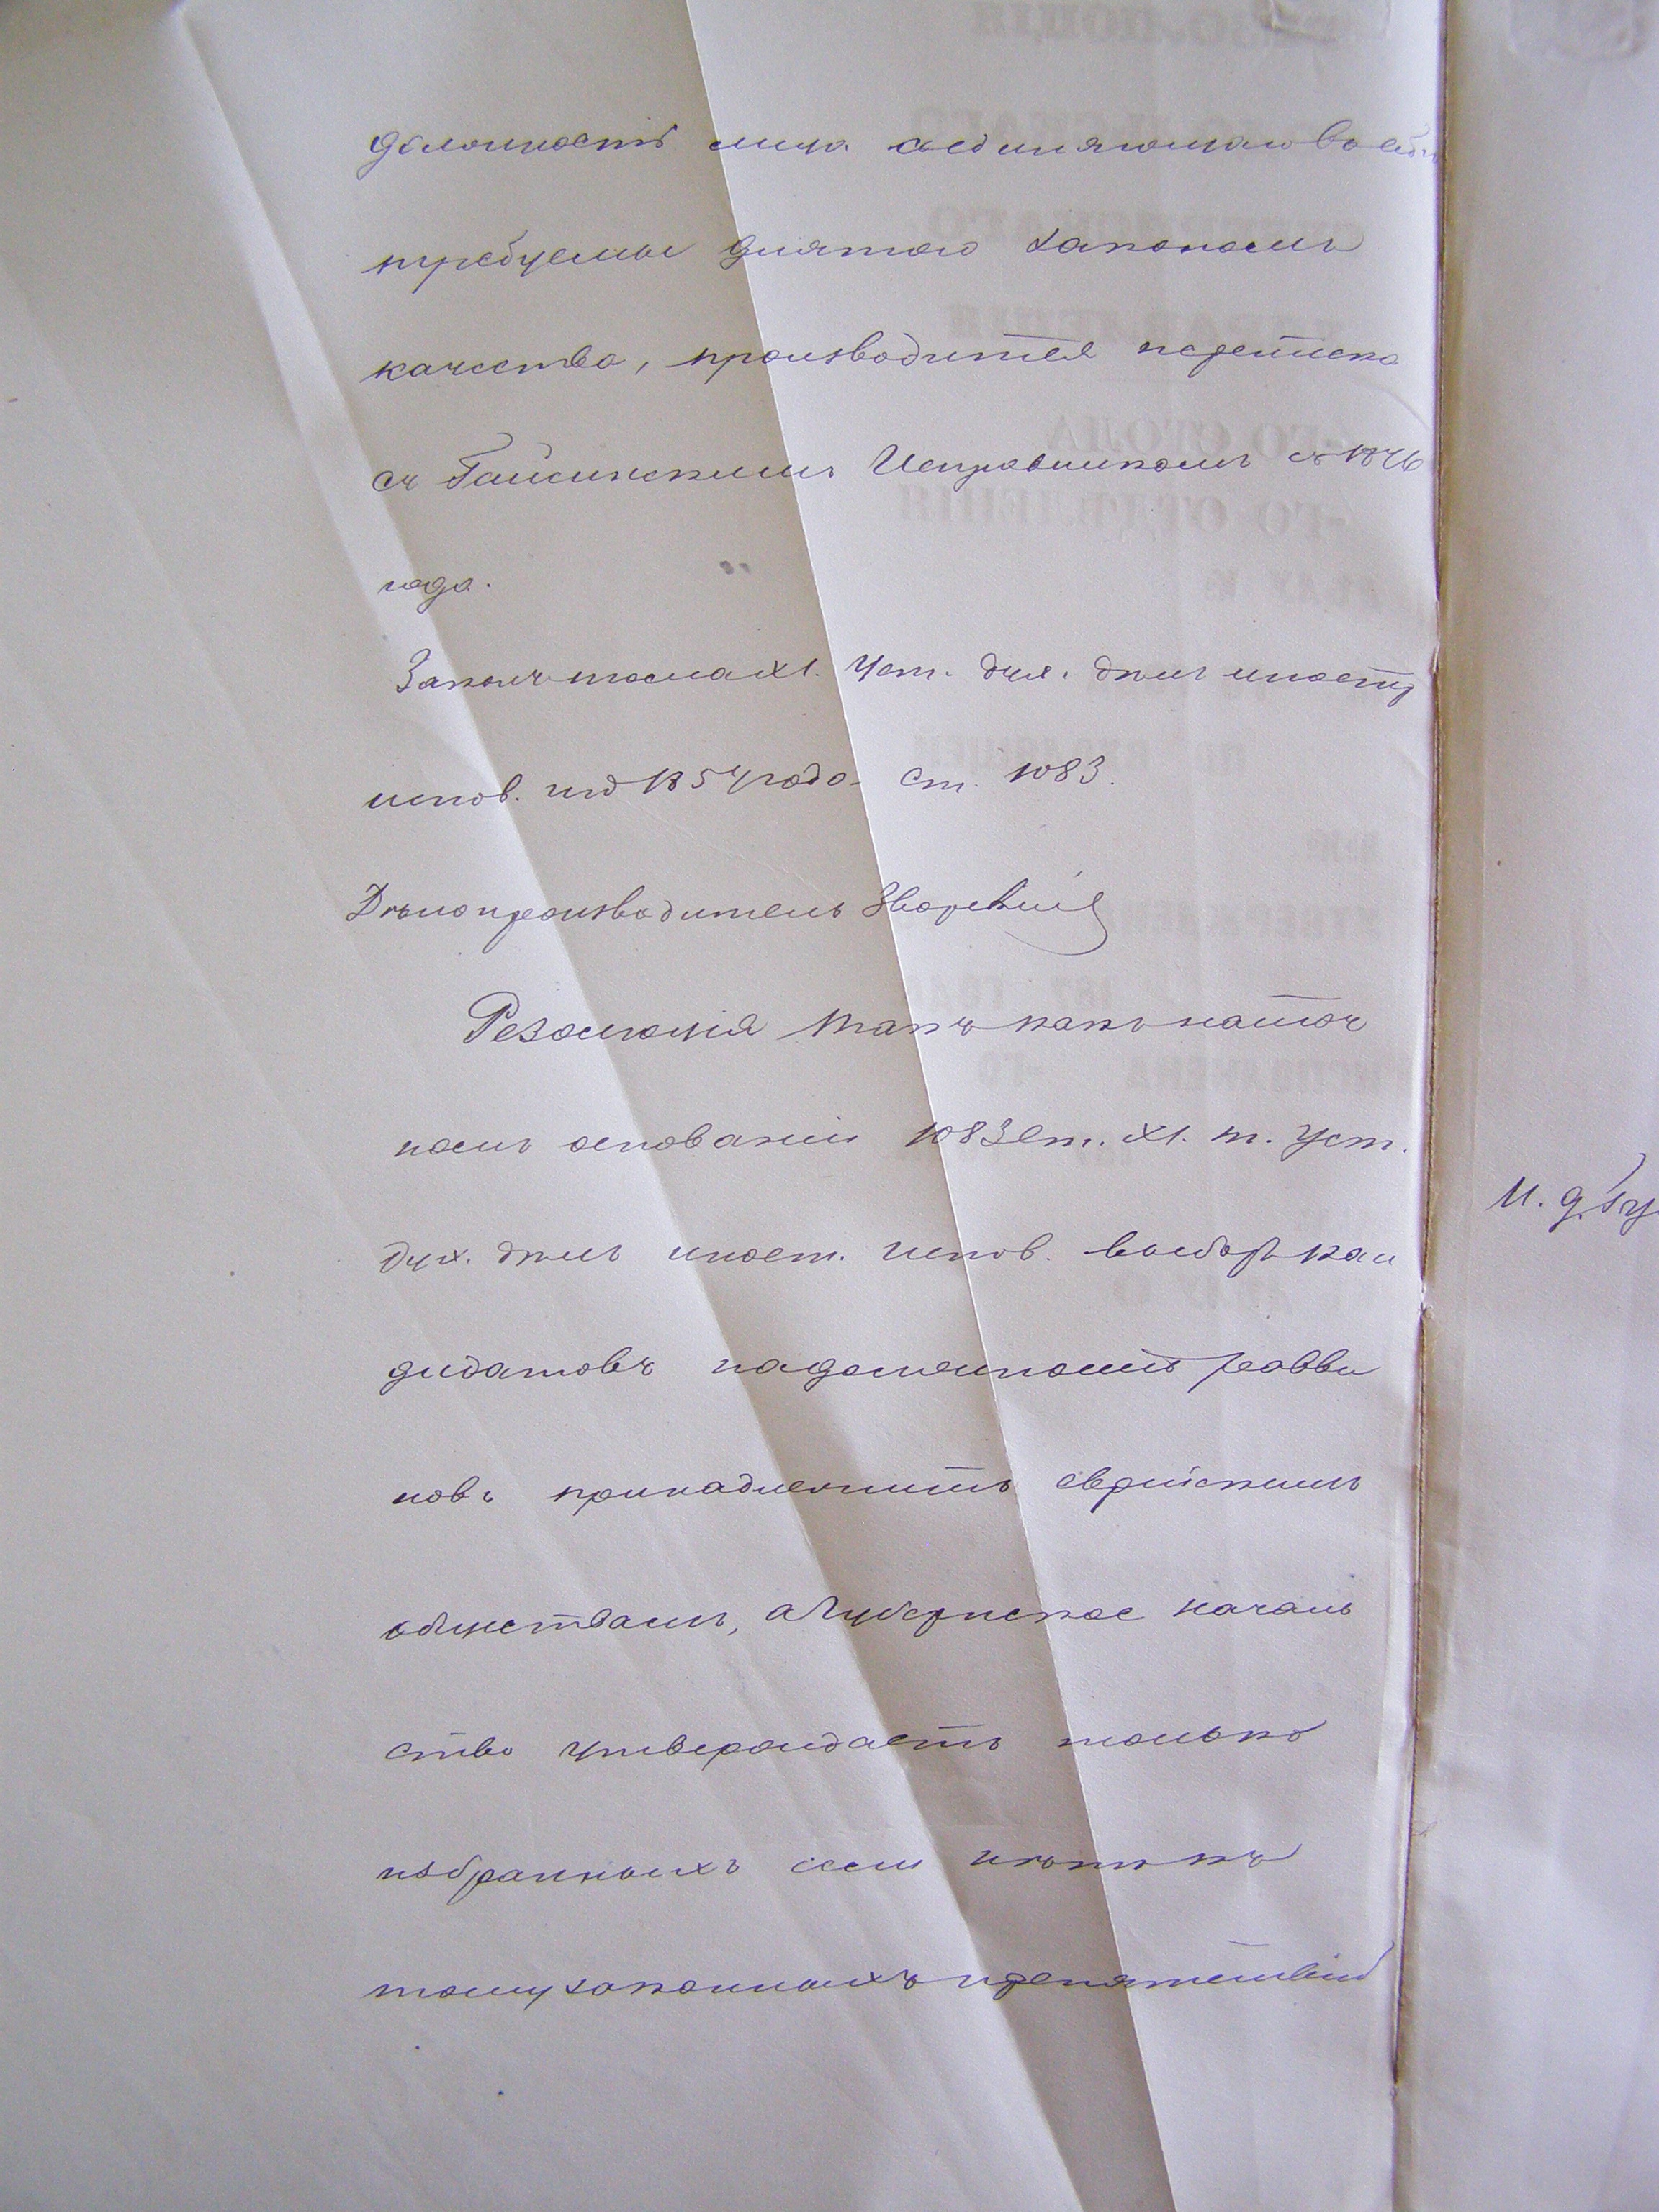 должность лица соединяющаго въ себѣ
требуемыя для того закономъ
качества, производится переписка
съ Гайсинскимъ Исправникомъ съ 1876
года.
Законъ тома XI. Уст. дух. дѣлъ иностр
испов. изд 1857 года ст. 1083.
Дѣлопроизводитель
Резолюція Такъ какъ на точ
номъ основаніи 1083 ст. XI. т. Уст.
дух. дѣлъ иност. испов. выборъ кан
дидатовъ на должность равви
новъ принадлежитъ еврейскимъ
обществамъ, а Губернское началь
ство утверждаетъ только
избранныхъ если нѣтъ къ
тому законныхъ препятствій
И. д.